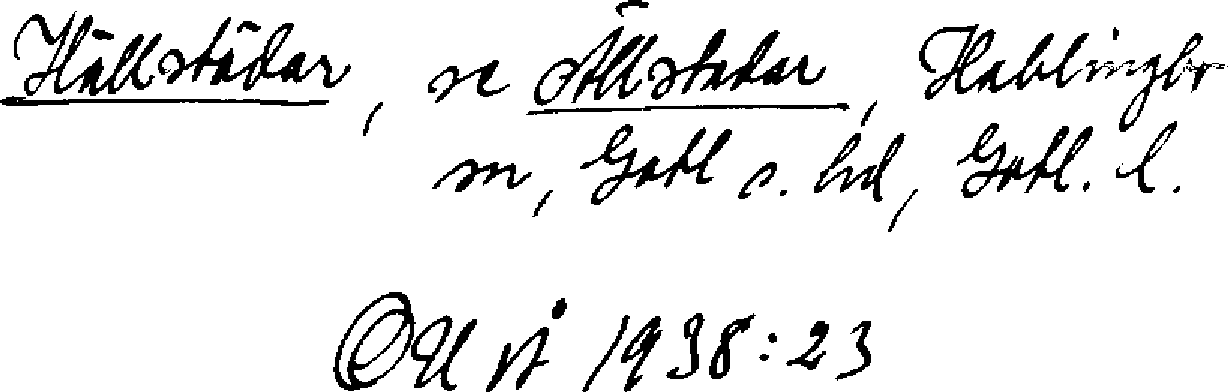 Hällstädar, se Ällstadar, Hablingbo
sn, Gotl s. hd, Gotl. l.
OU så 1938:23